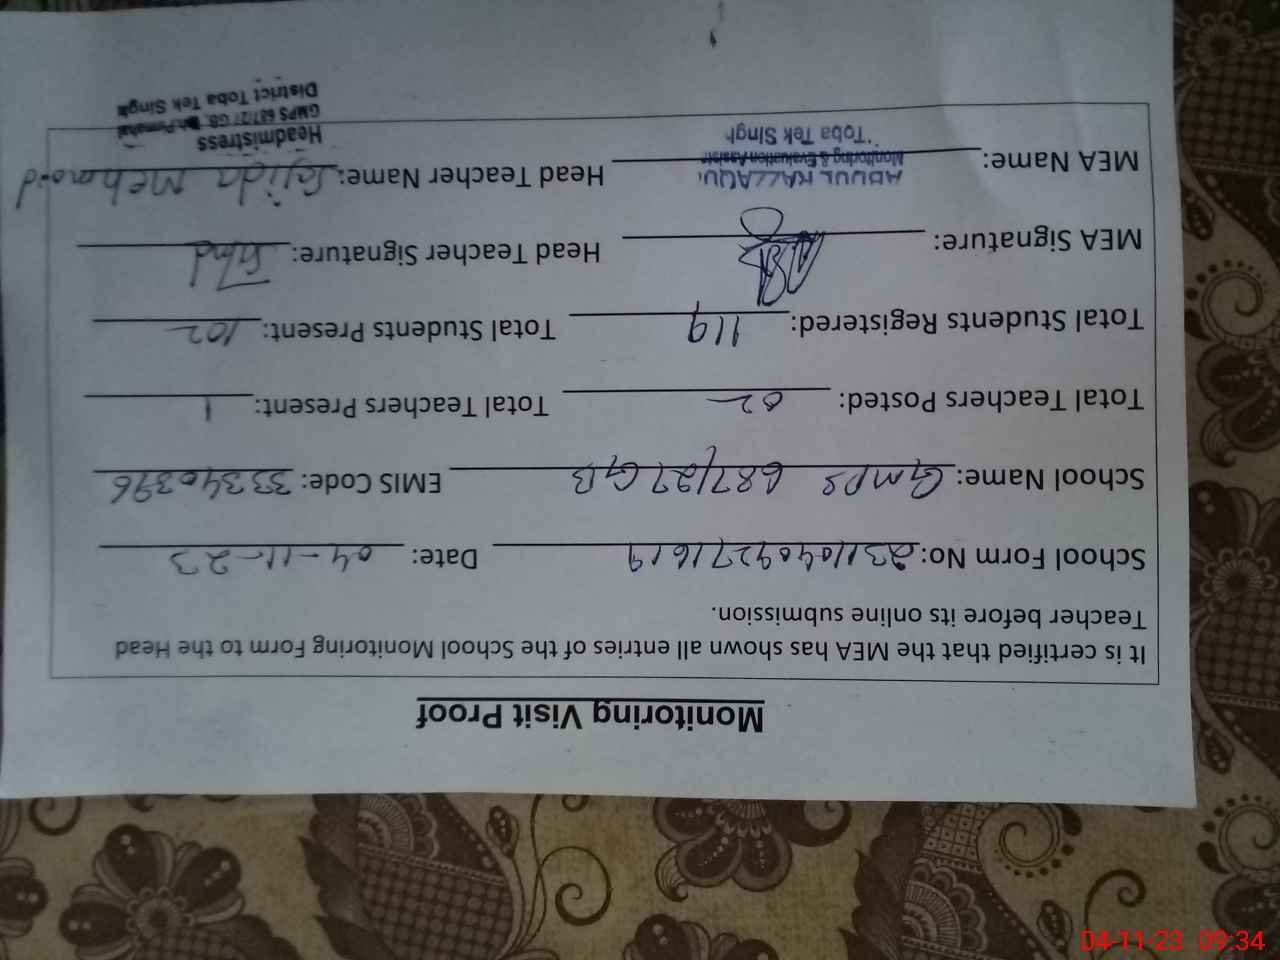 Monitoring Visit Proof
It is certified that the MEA has shown all entries of the School Monitoring Form to the Head
Teacher before its online submission.
School Form No: 231104092771619 Date: 04-11-23
School Name: GMPS 687/27 GB EMIS Code: 33340396
Total Teachers Posted: 02 Total Teachers Present: 1
Total Students Registered: 119 Total Students Present: 102
MEA Signature: Head Teacher Signature:
MEA Name: ABDUL RAZZAQ Head Teacher Name: Sajida Mehmood
Monitoring & Evaluation Assist
Toba Tek Singh
Headmistress
GMPS 687/27 GB, Pirmahal
District Toba Tek Singh
04-11-23 09:34